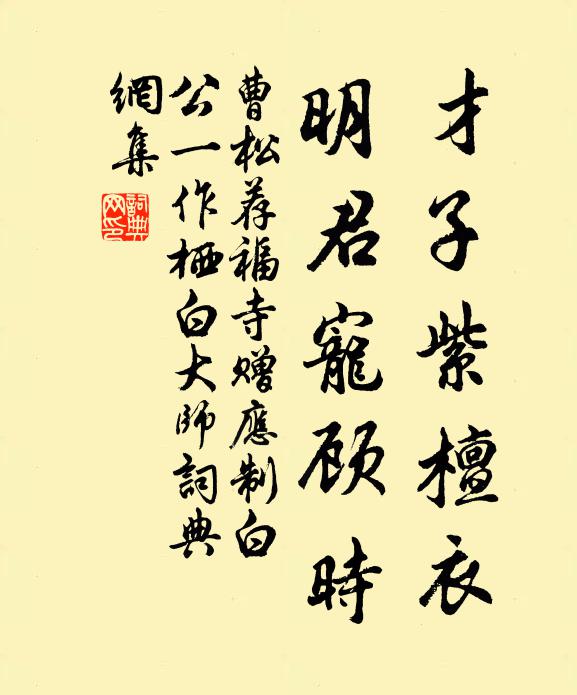 才子紫檀衣
明君寵顧時
曹松荐福寺赠應制白
公一作栖白大師詞典
網集
詞典網印